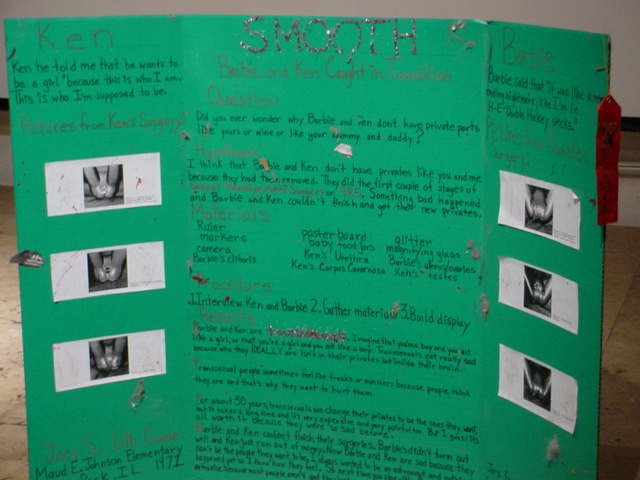 Ken
Ken he told me that he wants to
be a girl "because this is who I am.
This is who I'm supposed to be.
Pictures from Ken's Surgery
Jory S. 6th Grade
Maud E. Johnson Elementary
IL 1971
SMOOTH
Barbie and Ken Caught in Transition
Question
Did you ever wonder why Barbie and Ken don't have private parts
like yours or mine or like your mommy and daddy?
Hypothesis
I think that Barbie and Ken don't have privates like you and me
because they had them removed. They did the first couple of stages of
Sexual Reassignment Surgery or SRS. Something bad happened
and Barbie and Ken couldn't finish and get their new privates.
Materials
Ruler
markers
camera
Barbie's clitoris
poster board
baby food jars
Ken's Urethra
Ken's Corpus Cavernosa
glitter
magnifying glass
Barbie's uterus/ovaries
Ken's testes
Procedure
1. Interview Ken and Barbie 2. Gather materials 3. Build display
Results
Barbie and Ken are Imagine that you're a boy and you act
like a girl, or that you're a girl and you act like a boy. Transsexuals get really sad
because who they REALLY are isn't in their privates but inside their brain.
Transsexual people sometimes feel like freaks or monsters because people think
they are and that's why they want to hurt them.
For about 50 years, transsexuals can change their privates to be the ones they want,
but it takes a long time and it's very expensive and very painful too. But I guess it's
all worth it because they were so sad before.
Barbie and Ken couldn't finish their surgeries. Barbie's didn't turn out
well and Ken just ran out of money. Now Barbie and Ken are sad because they
can't be the people they want to be. I always wanted to be an astronaut and
happened yet so I know how they feel.
Barbie
Barbie said that it was like a never
ending nightmare. "I'd die for
H-E-double hockey sticks."
Pictures from Barbie's
Surgery